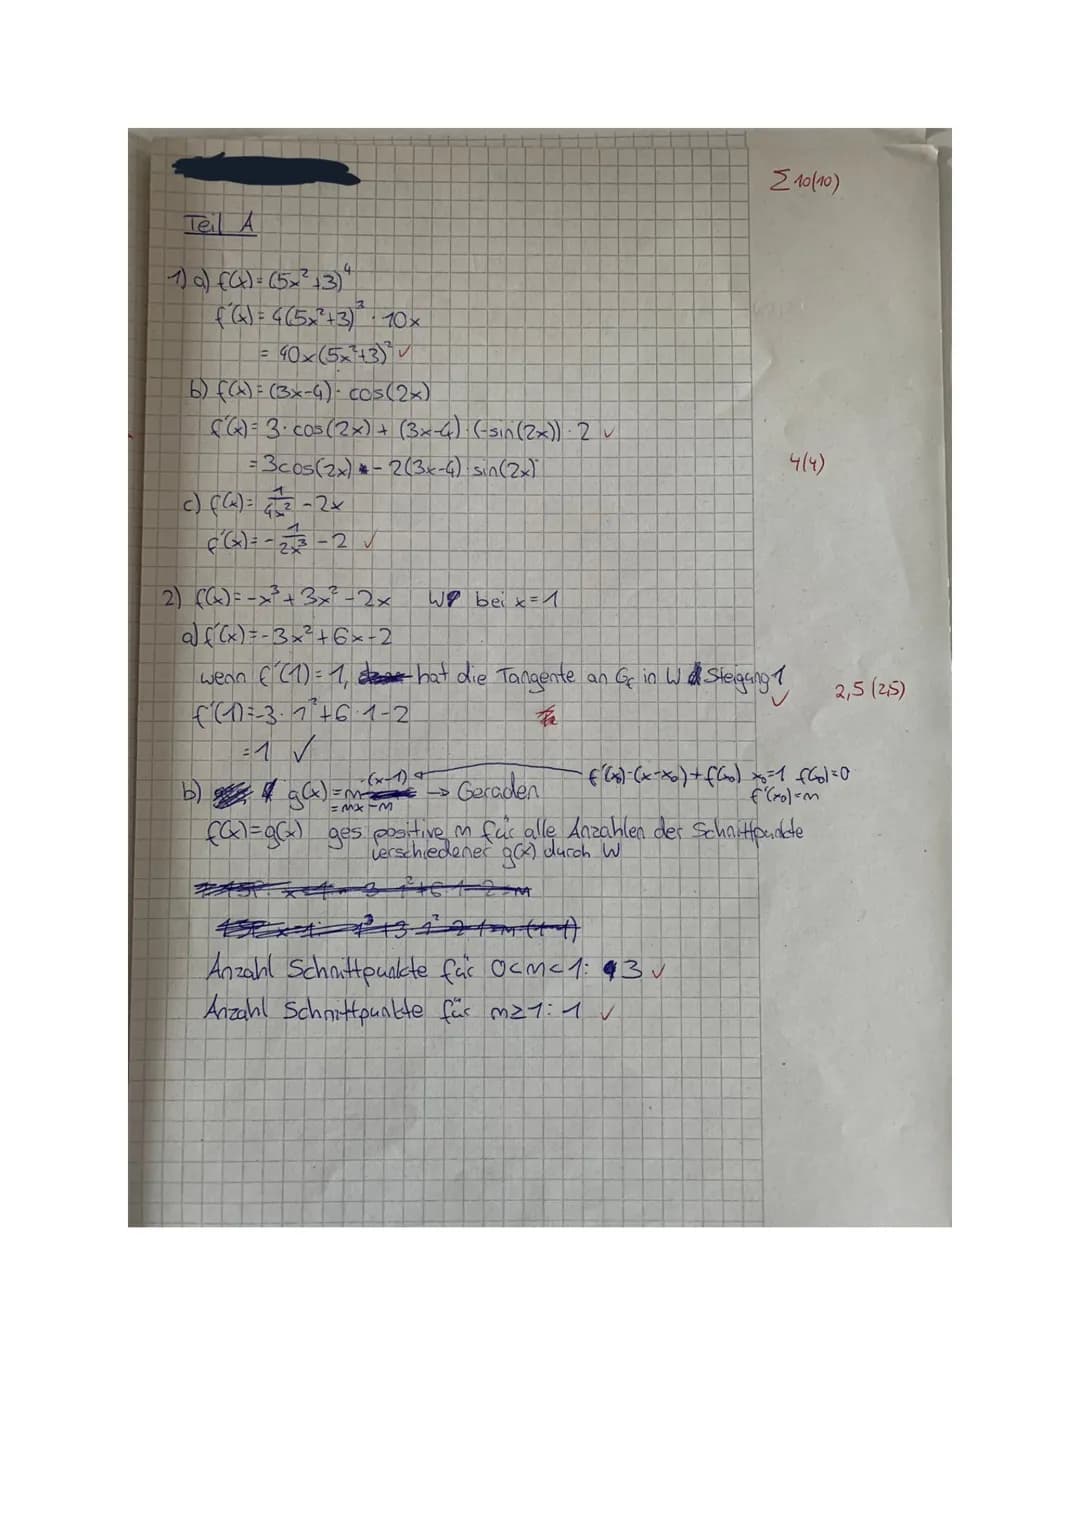 Σ 10(10)
Teil A
1) a) f(x) = (5x²+3)⁴
f'(x) = 4(5x²+3)³ · 10x
= 40x(5x²+3)³ ✓
b) f(x) = (3x-4) · cos(2x)
f'(x) = 3·cos(2x) + (3x-4)·(-sin(2x))·2 ✓
= 3cos(2x) - 2(3x-4) sin(2x)
4(4)
c) f(x) = 1/4x² - 2x
f'(x) = - 1/2x³ - 2 ✓
2) f(x) = -x³ + 3x² - 2x WP bei x=1
a) f'(x) = -3x² + 6x - 2
wenn f'(1) = 1, hat die Tangente an Gf in W Steigung 1 ✓
2,5 (2,5)
f'(1) = -3·1² + 6·1 - 2
= 1 ✓
b) g(x) = m·(x-1) → Geraden f'(x₀)·(x-x₀)+f(x₀) x₀=1 f(x₀)=0
= mx-m f'(x₀)=m
f(x) = g(x) ges positive m für alle Anzahlen der Schnittpunkte
verschiedener g(x) durch W
Anzahl Schnittpunkte für 0<m<1: 3 ✓
Anzahl Schnittpunkte für m≥1: 1 ✓